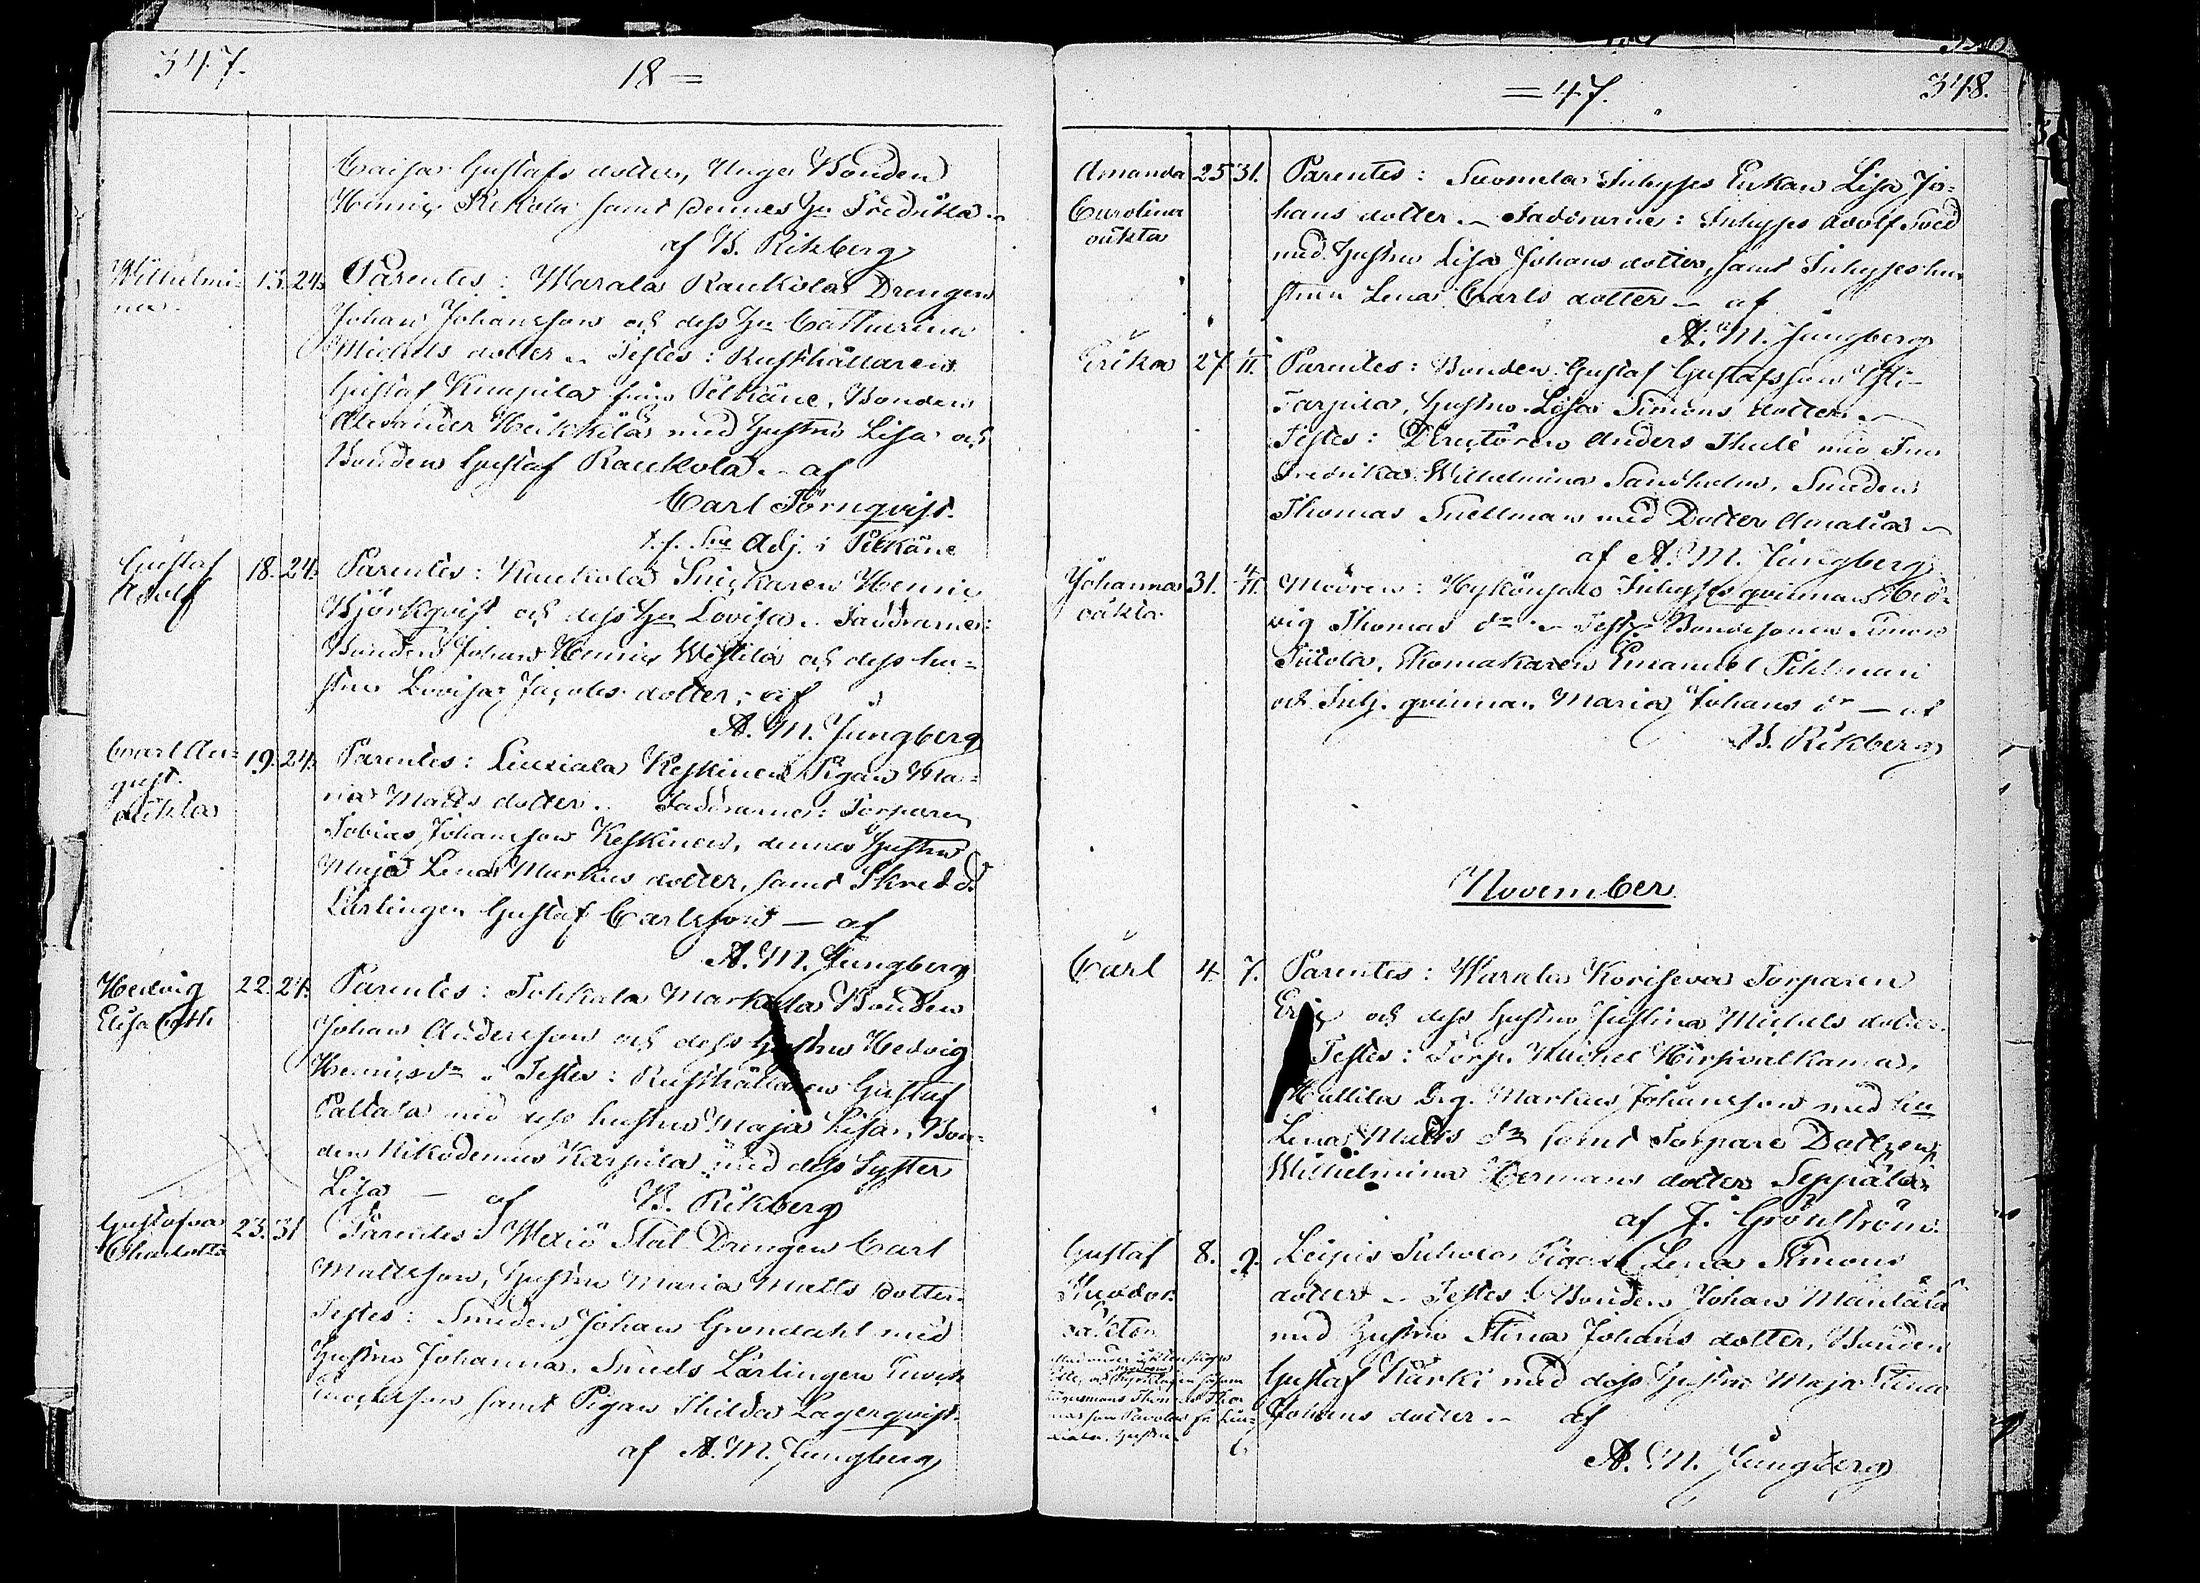 347.
18 =
Caisa Gustafs dotter, Unga Bonden
Henric Rekola samt dennes Hu Fredrika
af B. Rikberg
Wilhelmi- 13. 24. Parentes: Warala Raukola Drengen
na. Johan Johansson och dess Hu Catharina
Michels dotter. Testes: Rusthållaren
Gustaf Knupila från Pelkäne, Bonden
Alexander Heikkilä med Hustru Lisa och
Bonden Gustaf Raukola. af
Carl Törnqvist.
t.f. Adj. i Pelkäne
Gustaf 18. 24. Parentes: Kaukola Snickaren Henric
Adolf Björkqvist och dess Hu Lovisa. Faddrarne:
Bonden Johan Henric Westilä och dess hu-
stru Lovisa Jacobs dotter; af
A. M. Jungberg
Carl Au- 19. 24. Parentes: Liuxiala Keskinen Pigan Ma-
gust. ria Matts dotter. Faddrarne: Torparen
oäkta Tobias Johansson Keskinen, dennes Hustru
Maja Lena Markus dotter, samt Skredd.
Lärlingen Gustaf Carlsson — af
A. M. Jungberg
Hedvig 22. 24. Parentes: Tohkala Markula Bonden
Elisabeth Johan Andersson och dess Hustru Hedvig
Henricsdr. Testes: Rusthållaren Gustaf
Paltala med dess hustru Maja Lisa, Bon-
den Nikodemus Karpila med dess Syster
Lisa — af B. Rikberg
Gustafva 23. 31 Parentes: Wexiö Stal Drengen Carl
Charlotta Mattsson, Hustru Maria Matts dotter.
Testes: Smeden Johan Grondahl med
Hustru Johanna, Smeds Lärlingen
samt Pigan Thilda Lagerqvist.
af A. M. Jungberg
= 47.
348.
Amanda 25 31. Parentes: Suomela Inhyses Enkan Lisa Jo-
Carolina hans dotter. Faddrarne: Inhyses Adolf Sved
oäkta med Hustru Lisa Johans dotter, samt Inhyses hu-
strun Lena Carls dotter — af
A. M. Jungberg
Erika 27 Parentes: Bonden Gustaf Gustafsson Yli-
Tarpila, Hustru Lisa Simons dotter.
Testes: Directören Anders Thulé med Fru
Fredrika Wilhelmina Sandholm, Smeden
Thomas Snellman med Dotter Amalia
af A. M. Jungberg
Johanna 31. Modren: Hyköngala Inhyses qvinnan Hed-
oäkta vig Thomas dr. Testes: Bondesonen Simon
Tiilola, Skomakaren Emanuel Pihlman
och Inh. qvinnan Maria Johans dr — af
B. Rikberg
November
Carl 4. 7. Parentes: Warala Koriseva Torparen
Eric och dess Hustru Justina Michels dotter.
Testes: Torp. Michel Hirsivalkama,
Mattila Drg. Markus Johansson med hu
Lena Matts dr samt Torpare Dottren
Wilhelmina Hermans dotter Seppälä
af J. Grönström.
Gustaf 8. 9. Leipis Pigan Lena Simons
Theodor. dotter. Testes: Bonden Johan Mäntälä
oäkta med Hustru Stina Johans dotter, Bonden
Gustaf Härki med dess Hustru Maja Stina
Johans dotter. af
A. M. Jungberg